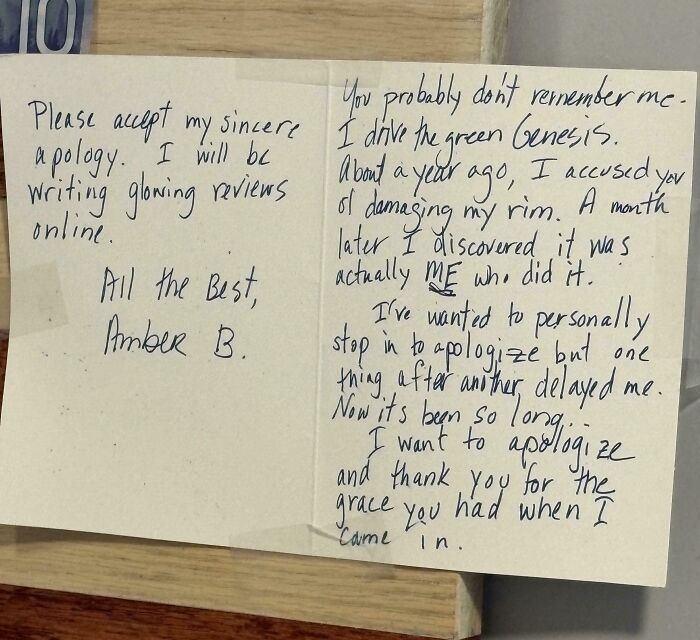 10
You probably don't remember me.
I drive the green Genesis.
About a year ago, I accused you
of damaging my rim. A month
later I discovered it was
actually ME who did it.
I've wanted to personally
stop in to apologize but one
thing after another delayed me.
Now its been so long...
I want to apologize
and thank you for the
grace you had when I
came in.
Please accept my sincere
apology. I will be
writing glowing reviews
online.
All the Best,
Amber B.